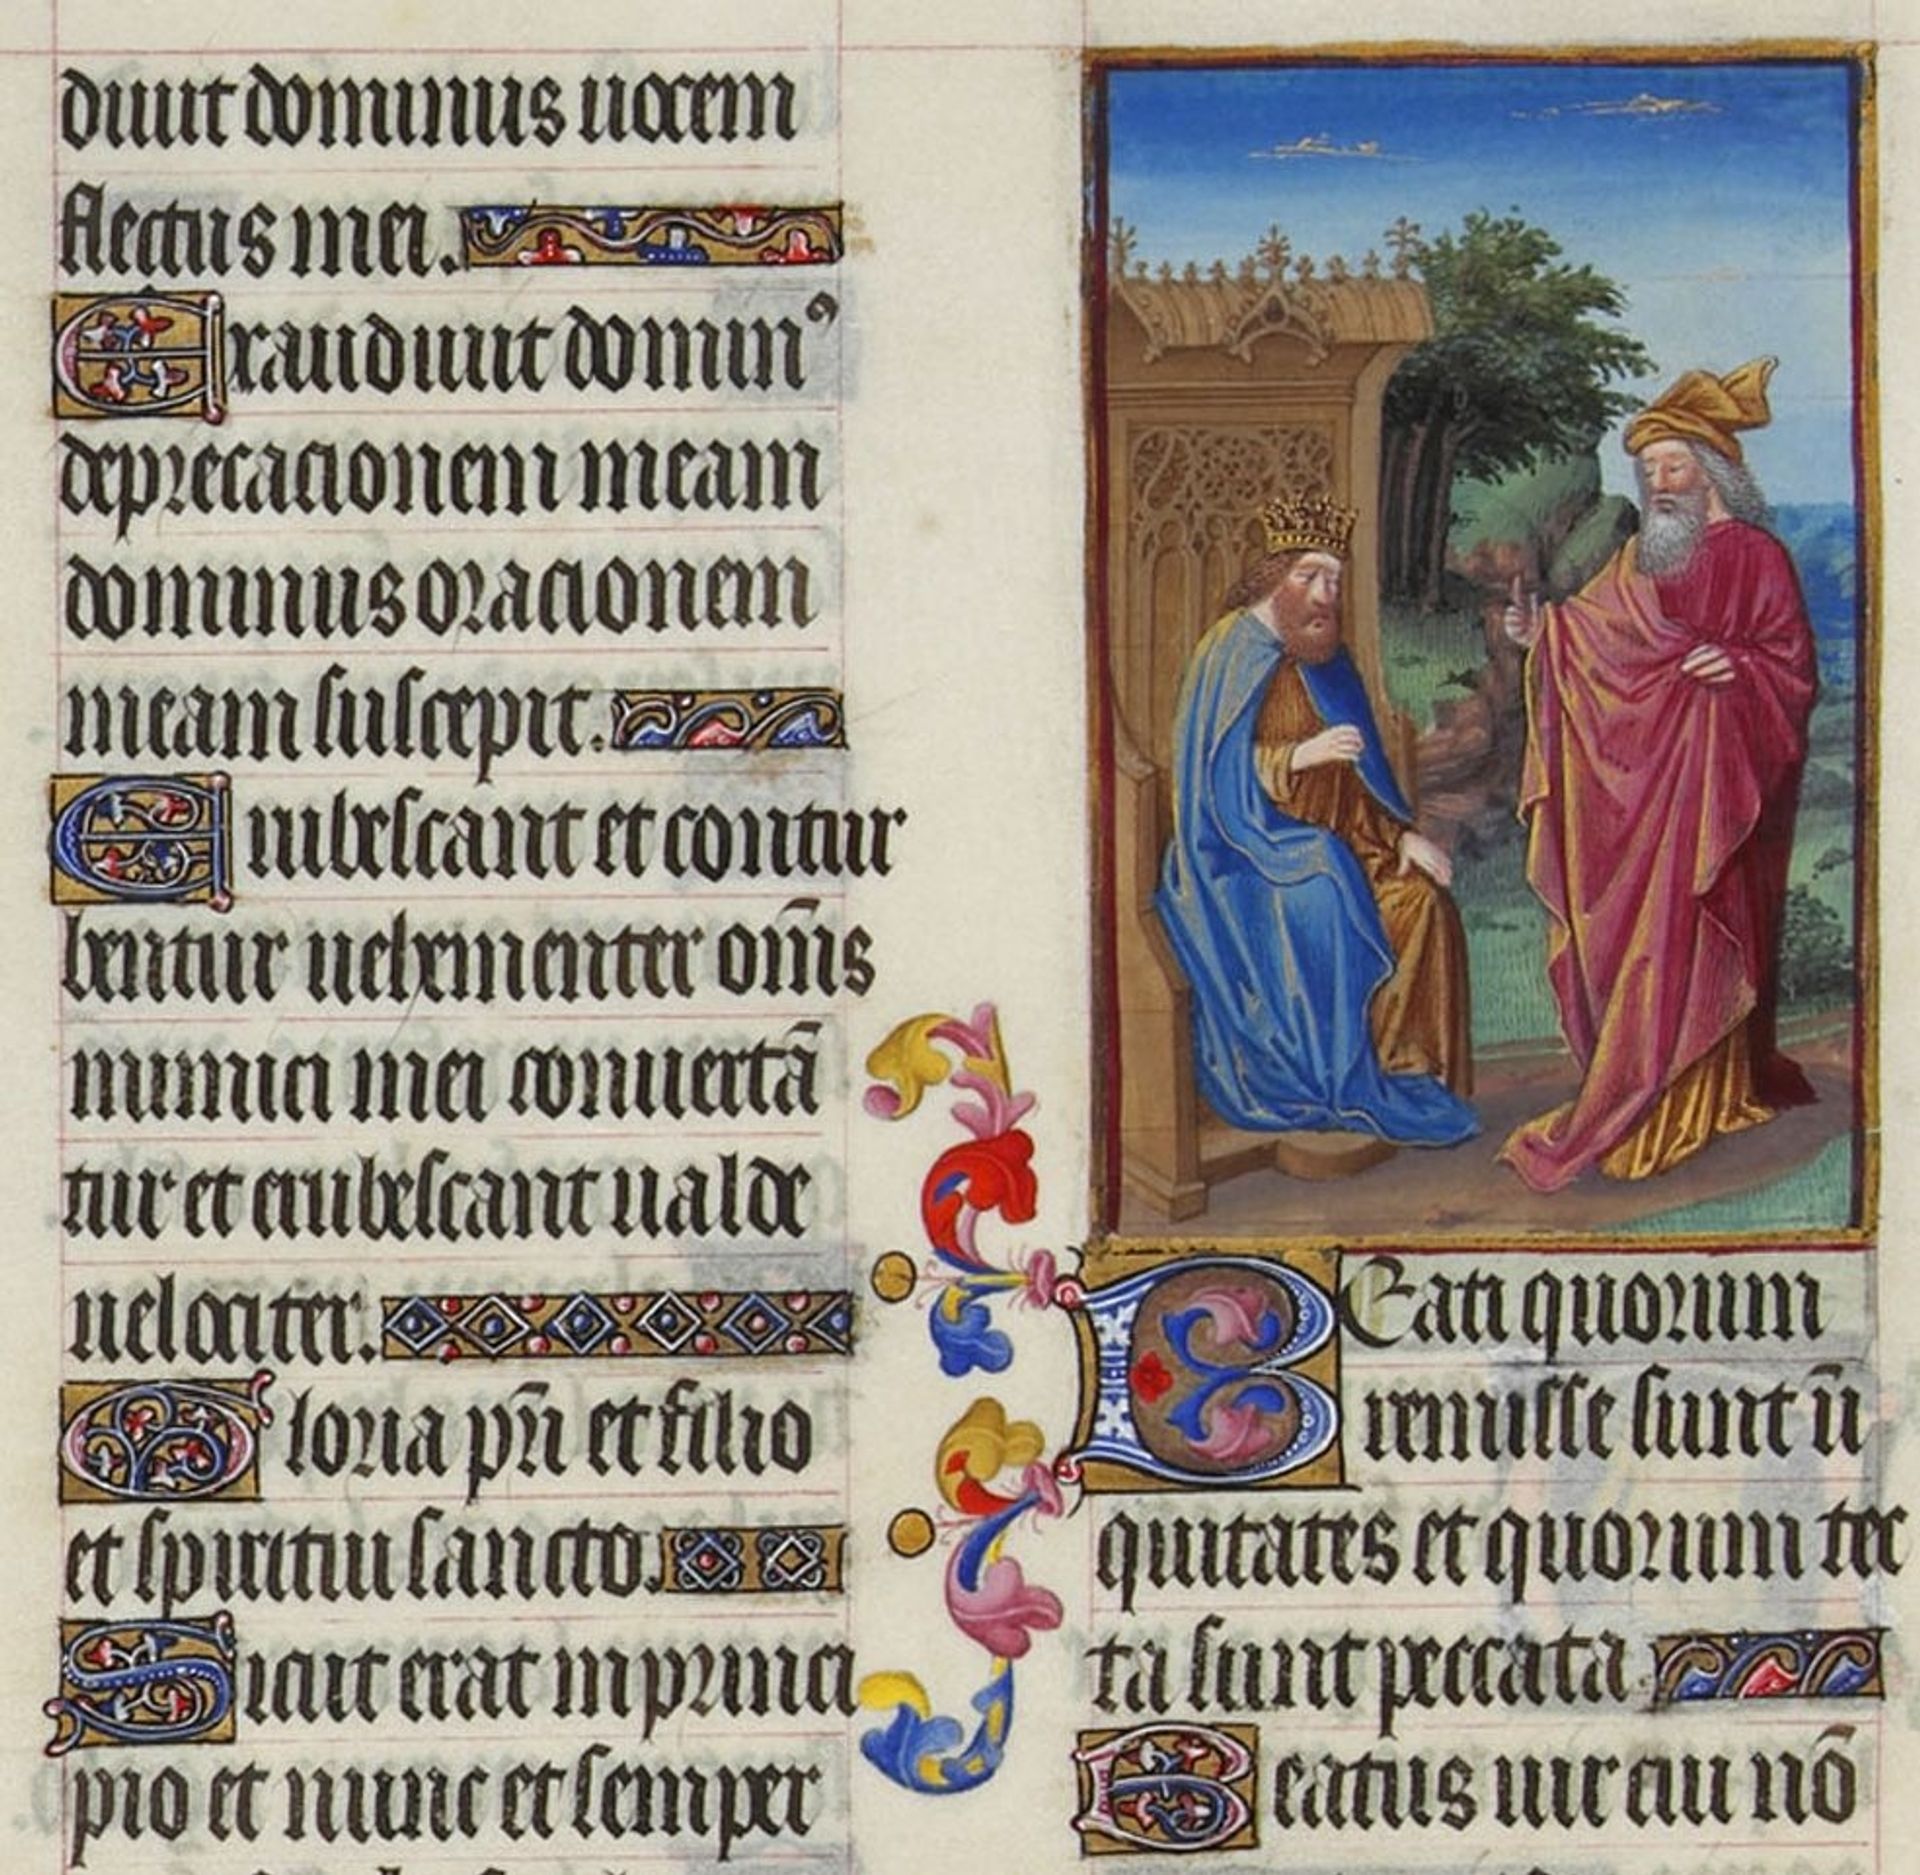 diuit dominus uocem
fletus mei.
Exaudiuit dominꝰ
deprecacionem meam
dominus oracionem
meam suscepit.
Erubescant et contur
bentur uehementer om̄s
inimici mei conuertā
tur et erubescant ualde
uelociter.
Gloria pr̄i et filio
et spiritui sancto.
Sicut erat in princi
pio et nunc et semper
Beati quorum
remisse sunt in̄
quitates et quorum tec
ta sunt peccata.
Beatus uir cui nō